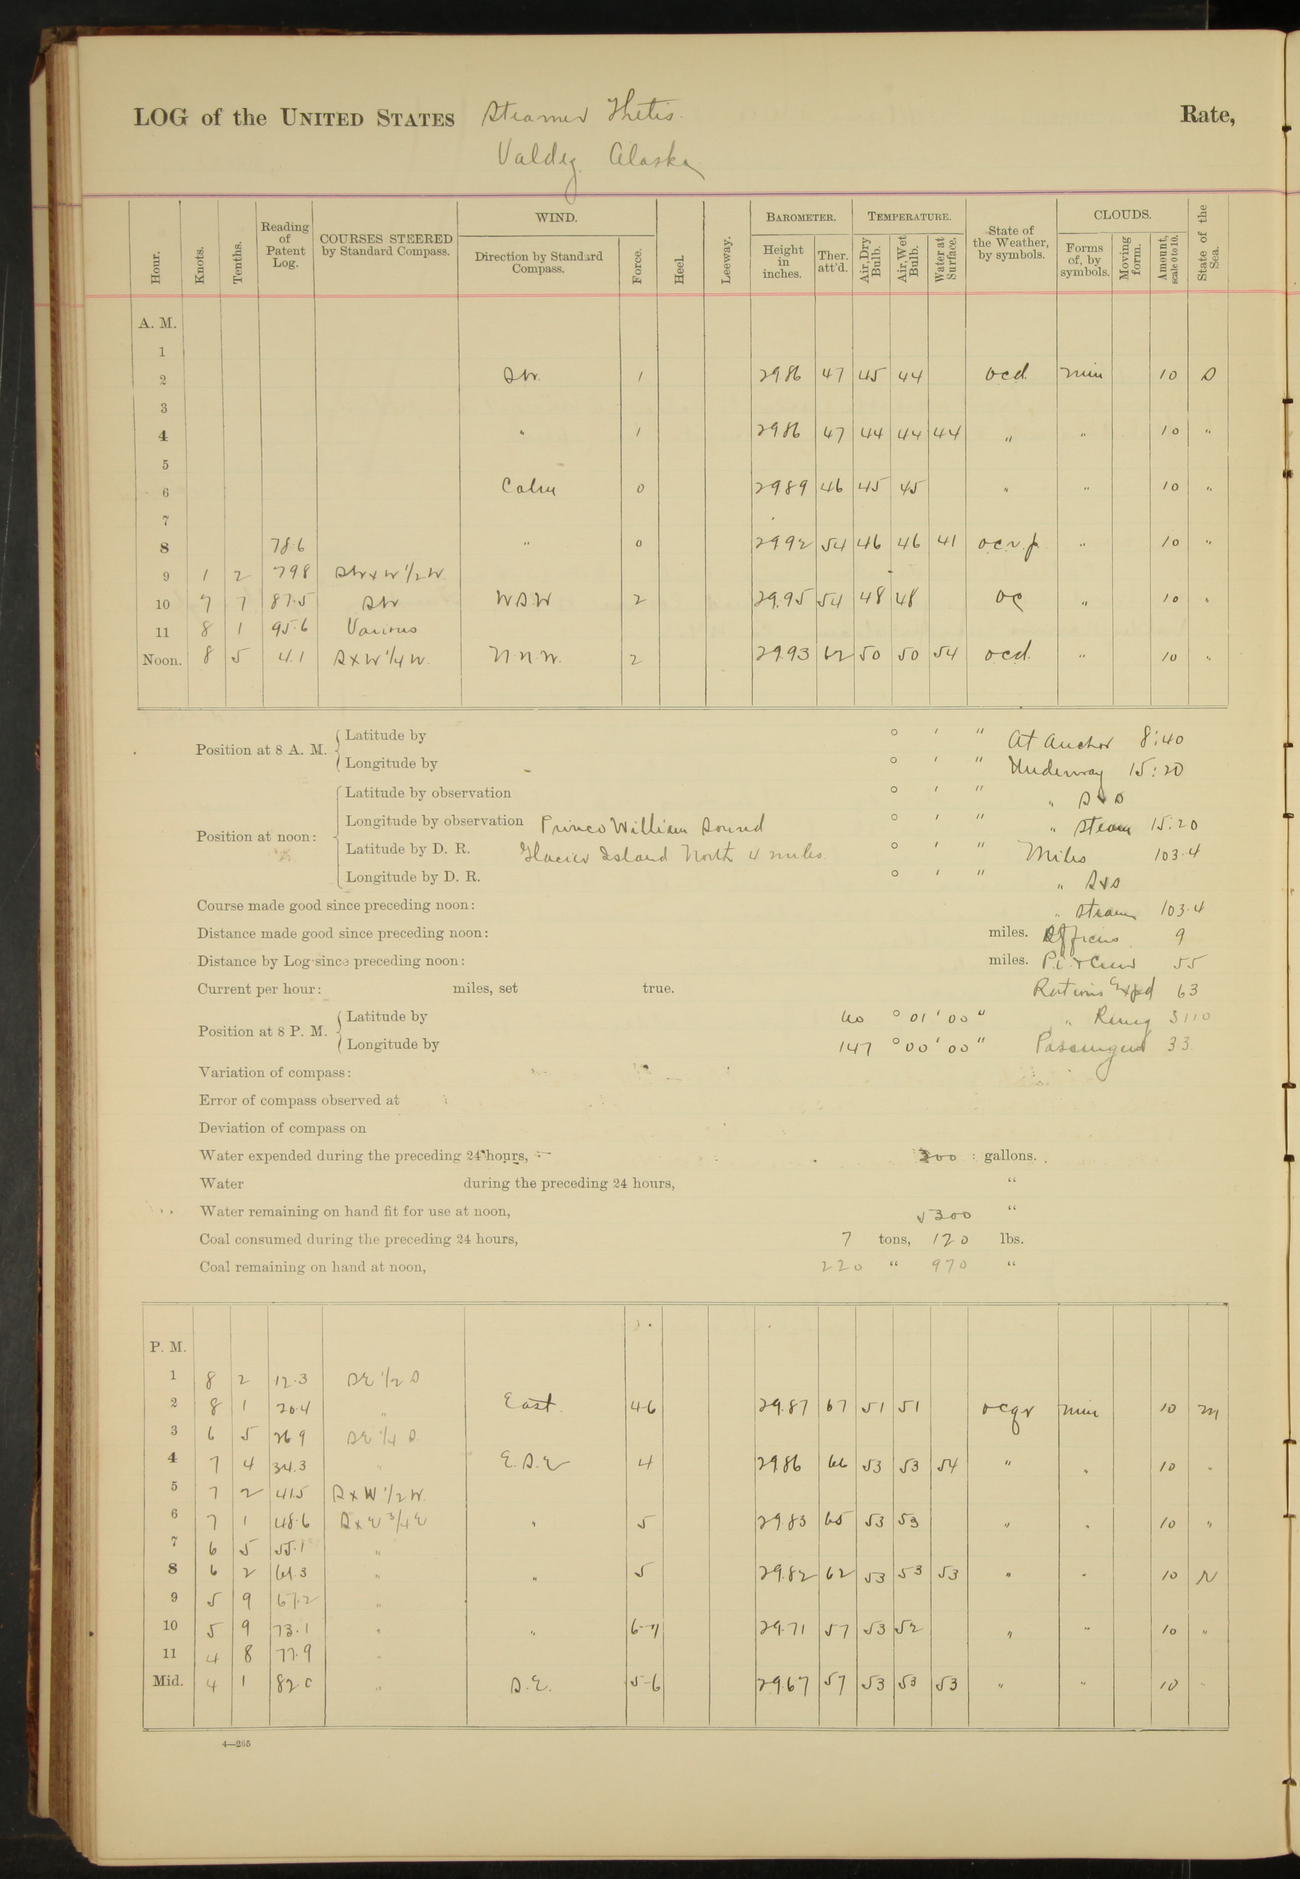 LOG of the UNITED STATES Steamer Thetis. Rate,
Valdez Alaska
Hour. Knots. Tenths. Reading of Patent Log. COURSES STEERED by Standard Compass. WIND. Direction by Standard Compass. Force. Heel. Leeway. BAROMETER. Height in inches. Ther. att'd. TEMPERATURE. Air, Dry Bulb. Air, Wet Bulb. Water at Surface. State of the Weather, by symbols. CLOUDS. Forms of, by symbols. Moving form. Amount, scale 0 to 10. State of the Sea.
A. M.
1
2 SW. 1 2986 47 45 44 ocd nim 10 S
3
4 " 1 2986 47 44 44 44 " " 10 "
5
6 Calm 0 2989 46 45 45 " " 10 "
7
8 78.6 " 0 2992 54 46 46 41 ocr.f. " 10 "
9 1 2 798 SWxW 1/2 W
10 7 7 87.5 SW WSW 2 29.95 54 48 48 oc " 10 "
11 8 1 95.6 Various
Noon. 8 5 4.1 SxW 1/4 W. N.N.W. 2 2993 62 50 50 54 ocd. " 10 "
Position at 8 A. M. Latitude by ° ' " At Anchor 8:40
Longitude by ° ' " Underway 15:20
Position at noon: Latitude by observation ° ' " " S & S
Longitude by observation Prince William Sound ° ' " " Steam 15:20
Latitude by D. R. Glacier Island North 4 miles. ° ' " Miles 103.4
Longitude by D. R. ° ' " " S & S
Course made good since preceding noon: " Steam 103.4
Distance made good since preceding noon: miles. Officers 9
Distance by Log since preceding noon: miles. P.O. & Crew 55
Current per hour: miles, set true. Rations Exp'd 63
Position at 8 P. M. Latitude by 60 ° 01 ' 00 " " Remg 3110
Longitude by 147 ° 00 ' 00 " Passengers 33
Variation of compass:
Error of compass observed at
Deviation of compass on
Water expended during the preceding 24 hours, 300 gallons.
Water during the preceding 24 hours, "
Water remaining on hand fit for use at noon, 5300 "
Coal consumed during the preceding 24 hours, 7 tons, 120 lbs.
Coal remaining on hand at noon, 220 " 970 "
P. M.
1 8 2 12.3 SE 1/2 S
2 8 1 20.4 " East. 4-6 29.87 67 51 51 ocqr nim 10 M
3 6 5 26 9 SE 1/4 S
4 7 4 34.3 " E.S.E 4 2986 66 53 53 54 " " 10 "
5 7 2 415 SxW 1/2 W.
6 7 1 48.6 SxE 3/4 E " 5 2983 65 53 53 " " 10 "
7 6 5 55.1 "
8 6 2 61.3 " " 5 29.82 62 53 53 53 " " 10 N
9 5 9 67.2 "
10 5 9 73.1 " " 6-7 29.71 57 53 52 " " 10 "
11 4 8 77.9 "
Mid. 4 1 82 0 " S.E. 5-6 2967 57 53 53 53 " " 10 "
4—265